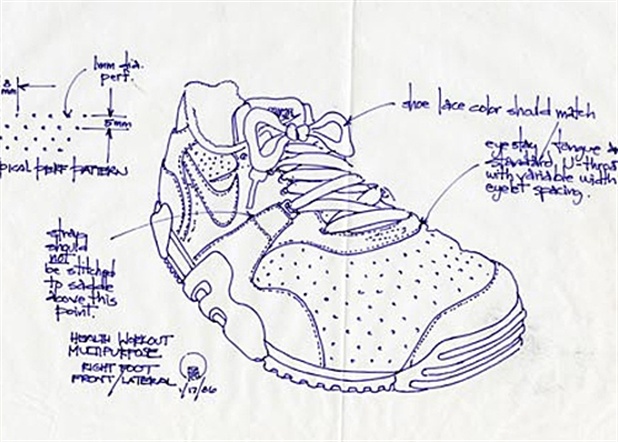 1mm dia.
perf.
8
mm
8mm
PICAL PERF PATTERN
shoe lace color should match
eyestay / tongue
standard U-throat
with variable width
eyelet spacing.
strap
should
not
be stitched
to saddle
above this
point.
HEALTH WORKOUT
MULTIPURPOSE
RIGHT FOOT
FRONT/LATERAL
1/17/86